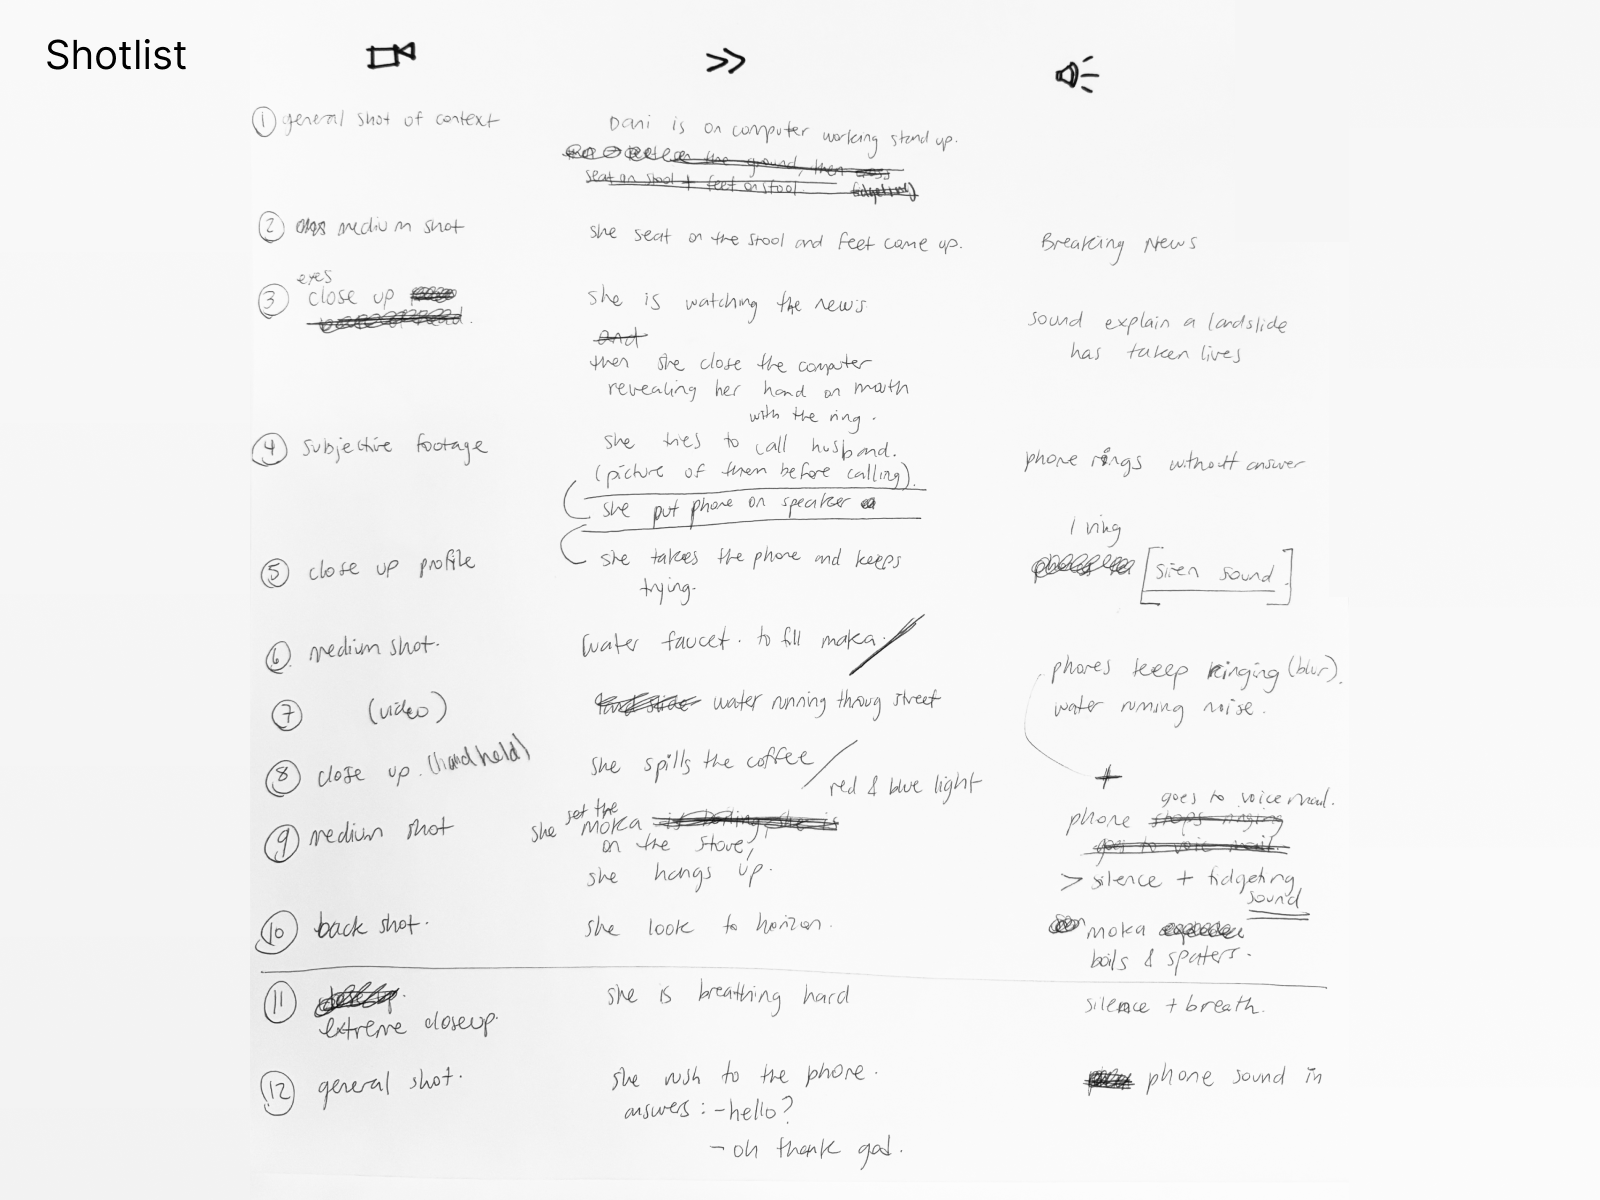 Shotlist
1 general shot of context
Dani is on computer working stand up.
on the ground, then cross
seat on stool + feet on stool. fidgeting)
2 medium shot
she seat on the stool and feet come up.
Breaking News
eyes
3 close up
she is watching the news
and
then she close the computer
revealing her hand on mouth
with the ring.
sound explain a landslide
has taken lives
4 subjective footage
she tries to call husband.
(picture of them before calling).
she put phone on speaker
phone rings without answer
5 close up profile
she takes the phone and keeps
trying.
1 ring
[siren sound.]
6. medium shot.
Water faucet. to fill maka.
phones keep ringing (blur).
7 (video)
water running throug street
water running noise.
8 close up. (handheld)
she spills the coffee
red & blue light
+
goes to voicemail.
9 medium shot
set the
she moka is boiling, she is
on the stove,
she hangs up.
phone stops ringing
goes to voic mail.
> silence + fidgeting
sound
10 back shot.
she look to horizon.
moka
boils & spaters.
11
extreme closeup.
she is breathing hard
silence + breath.
12 general shot.
she rush to the phone.
answers: - hello?
- oh thank god.
phone sound in